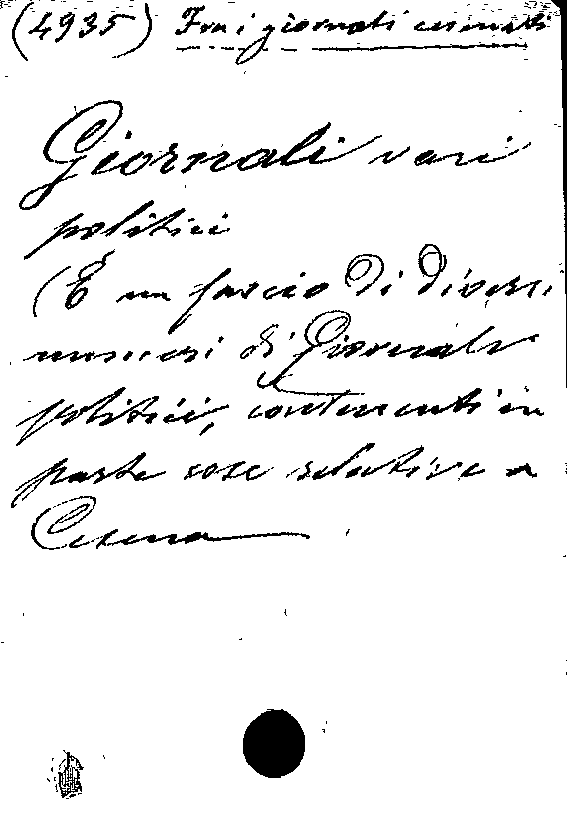 (4935) Fra i giornali cesenati
Giornali vari
politici
(È un fascio di diversi
numeri di Giornali
politici, contenenti in
parte cose relative a
Cesena